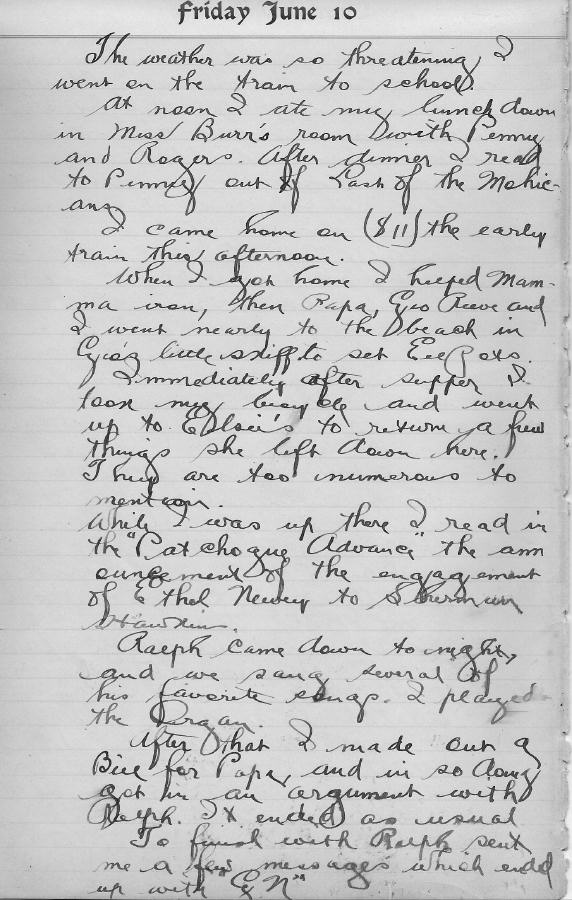 Friday June 10
The weather was so threatening I
went on the train to school.
At noon I ate my lunch down
in Miss Burr's room with Penny
and Rogers. After dinner I read
to Penney out of Last of the Mohic-
ans
I came home on (811) the early
train this afternoon.
When I got home I helped Mam-
ma iron, then Papa, Geo Reeve and
I went nearly to the beach in
Geo's little skiff to set Eel Pots.
Immediately after supper I
took my bicycle and went
up to Elsie's to return a few
things she left down here.
They are too numerous to
mention.
While I was up there I read in
the "Patchogue Advance" the ann
ouncement of the engagement
of Ethel Newey to Sherman
Hawkins.
Ralph came down to night,
and we sang several of
his favorite songs. I played
the Organ.
After that I made out a
Bill for Papa, and in so doing
got in an argument with
Ralph. It ended as usual
To finish with Ralph sent
me a few messages which ended
up with "G N"